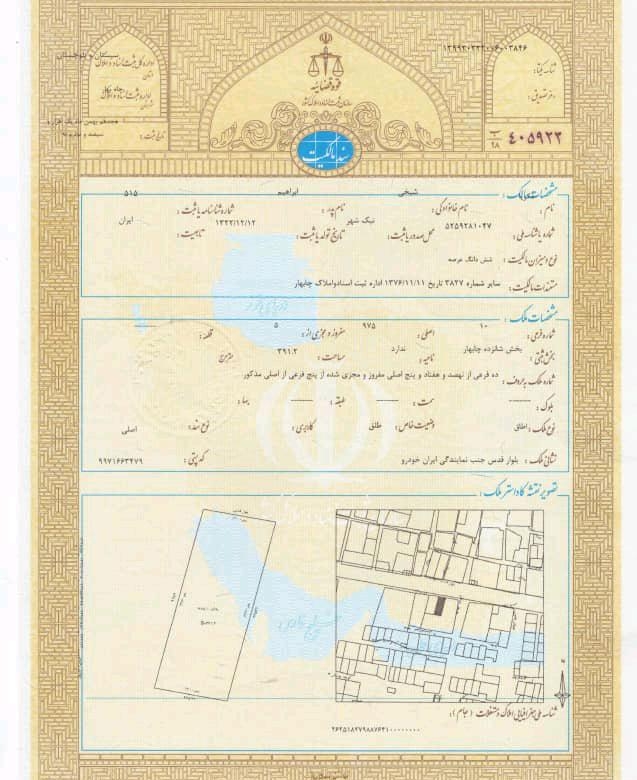 ۱۳۹۹۳۰۳۲۲۰۱۶۰۰۳۸۴۶
شناسه یکتا:
دفتر تصدیق:
۴۰۵۹۲۳
ب
۹۸
قوه قضائیه
سازمان ثبت اسناد و املاک کشور
سند مالکیت
سیستان و بلوچستان
اداره کل ثبت اسناد و املاک
استان
اداره ثبت اسناد و املاک
شهرستان
تاریخ ثبت:
مشخصات مالک:
نام:
نام خانوادگی: شیخی
نام پدر: ابراهیم
شماره شناسنامه یا ثبت: ۵۱۵
شماره یا شناسه ملی: ۵۲۵۹۲۸۱۰۴۷
محل صدور یا ثبت: نیک شهر
تاریخ تولد یا ثبت: ۱۳۲۲/۱۲/۱۲
تابعیت: ایران
نوع و میزان مالکیت: شش دانگ عرصه
مستندات مالکیت: سایر شماره ۳۸۲۷ تاریخ ۱۳۷۶/۱۱/۱۱ اداره ثبت اسناد و املاک چابهار
دریای مازندران
مشخصات ملک:
شماره فرعی: ۱۰
اصلی: ۹۷۵
مفروز و مجزی از: ۵
قطعه:
بخش ثبتی: بخش شانزده چابهار
ناحیه: ندارد
مساحت: ۳۹۱.۲ مترمربع
شماره ملک به حروف: ده فرعی از نهصد و هفتاد و پنج اصلی مفروز و مجزی شده از پنج فرعی از اصلی مذکور
بلوک:
سمت:
طبقه:
بها:
نوع ملک: اطاق
وضعیت خاص: طلق
کاربری:
نوع سند: اصلی
نشانی ملک: بلوار قدس جنب نمایندگی ایران خودرو
کد پستی: ۹۹۷۱۶۶۳۴۷۹
تصویر نقشه کاداستر ملک:
خلیج فارس
N
شناسه ملی جغرافیایی املاک و مستغلات (جام):